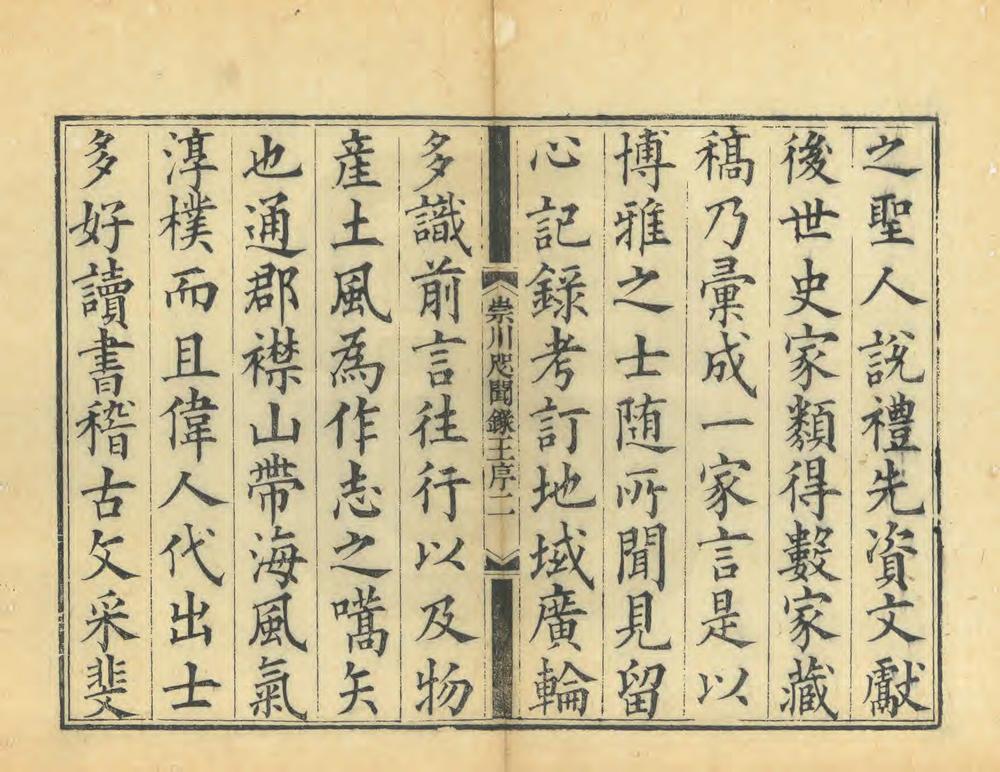 之聖人說禮先資文獻
後世史家類得數家藏
稿乃彙成一家言是以
博雅之士随所聞見留
心記錄考訂地域廣輪
崇川咫聞錄王序二
多識前言往行以及物
産土風為作志之嚆矢
也通郡襟山帶海風氣
淳樸而且偉人代出士
多好讀書稽古文采斐